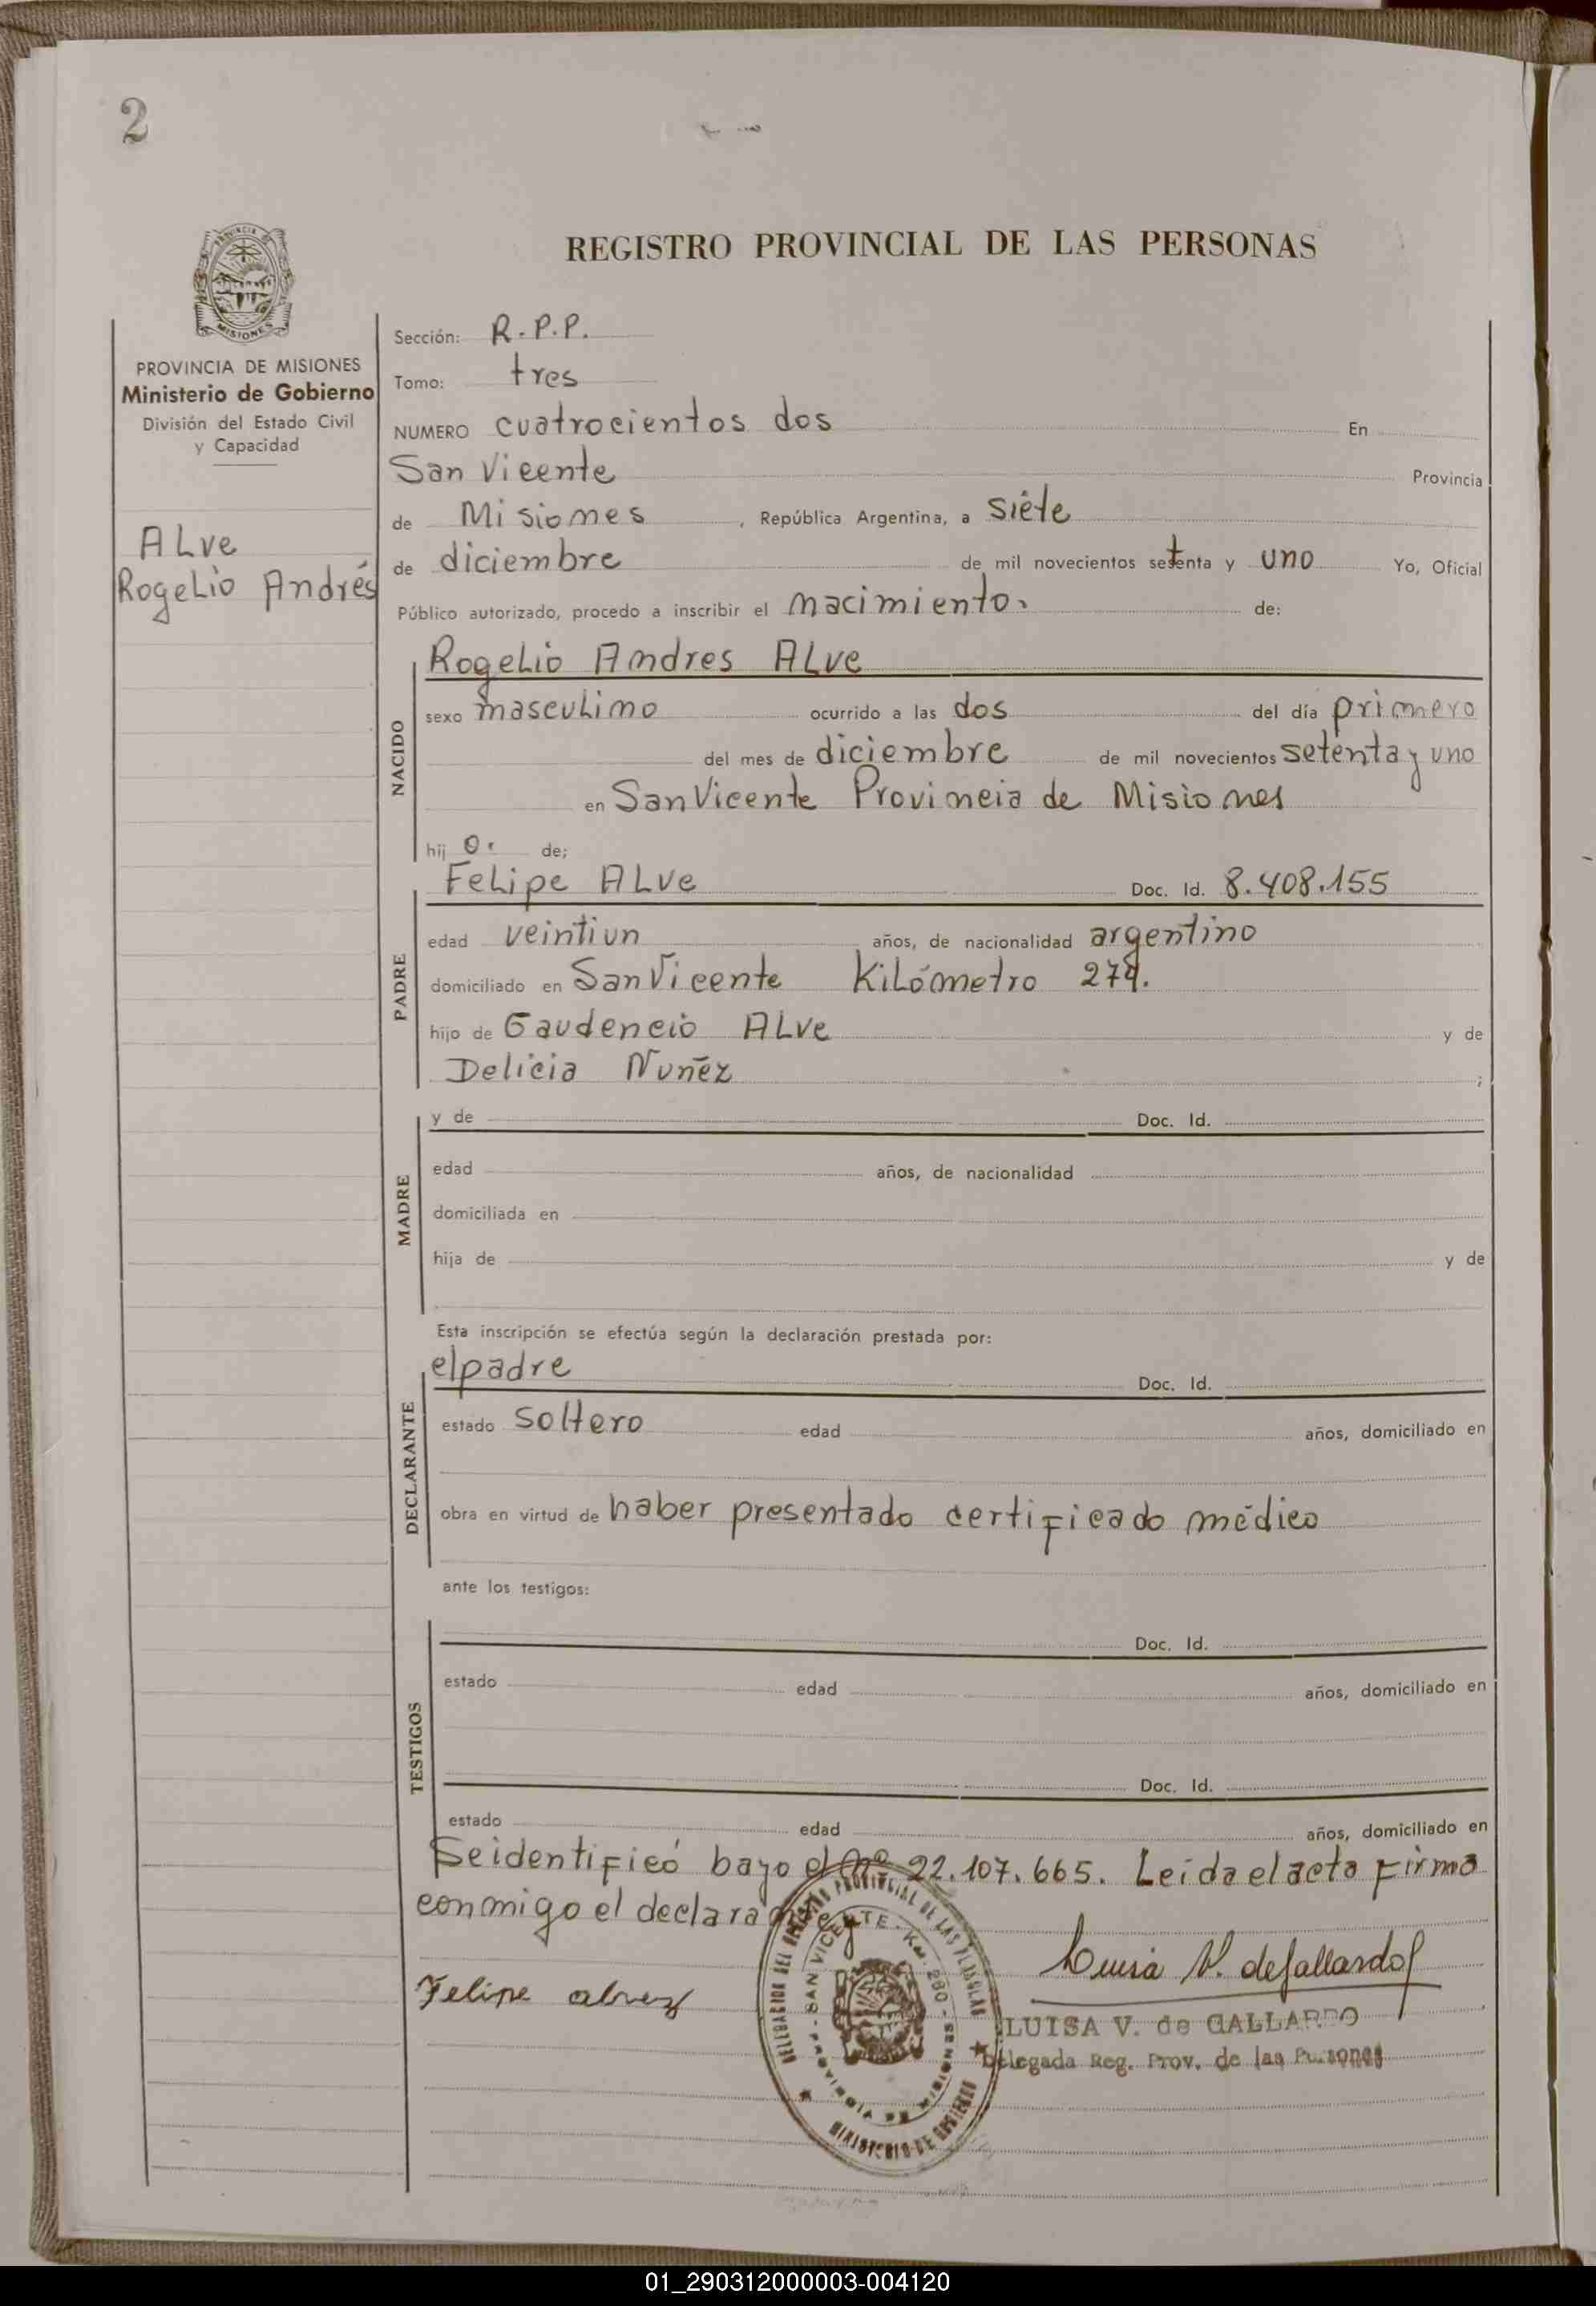 2
REGISTRO PROVINCIAL DE LAS PERSONAS
PROVINCIA DE MISIONES
Ministerio de Gobierno
División del Estado Civil
y Capacidad
ALve
RogeLio Andrés
Sección: R.P.P.
Tomo: tres
NUMERO cuatrocientos dos En
San Vicente Provincia
de Misiones, República Argentina, a siéte
de diciembre de mil novecientos setenta y uno Yo, Oficial
Público autorizado, procedo a inscribir el nacimiento. de:
NACIDO
RogeLio Andres ALve
sexo mascuLino ocurrido a las dos del día primero
del mes de diciembre de mil novecientos setenta y uno
en San Vicente Provincia de Misiones
hij o. de;
PADRE
FeLipe ALve Doc. Id. 8.408.155
edad veintiun años, de nacionalidad argentino
domiciliado en San Vicente KiLómetro 279.
hijo de Gaudencio ALve y de
Delicia Nuñez ;
MADRE
y de Doc. Id.
edad años, de nacionalidad
domiciliada en
hija de y de
Esta inscripción se efectúa según la declaración prestada por:
DECLARANTE
el padre Doc. Id.
estado soltero edad años, domiciliado en
obra en virtud de haber presentado certificado médico
ante los testigos:
TESTIGOS
Doc. Id.
estado edad años, domiciliado en
Doc. Id.
estado edad años, domiciliado en
Se identificó bayo el nº 22.107.665. Leida el acta firma
conmigo el declarante
Felipe alvez
Luisa V. de Gallardo
LUISA V. de GALLARDO
Delegada Reg. Prov. de las Personas
DELEGACION DEL REGISTRO PROVINCIAL DE LAS PERSONAS
SAN VICENTE - Km. 280
MINISTERIO DE GOBIERNO
01_290312000003-004120